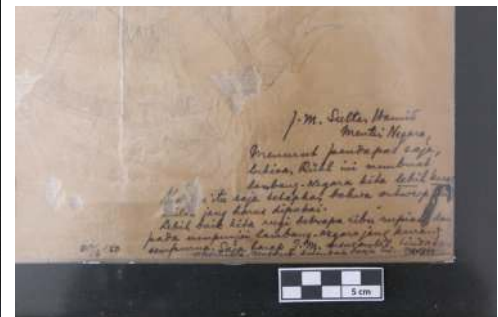 J.M. Sultan Hamid
Menteri Negara,
Menurut pendapat saja,
Ruhl ini membuat
lambang-negara kita lebih
itu saja tetapkan, bahwa ontwerp
jang harus dipakai.
Lebih baik kita rugi beberapa ribu rupiah
pada mempunjai lambang-negara jang kurang
sempurna. Saja harap J.M. mengambil tindakan
5 cm